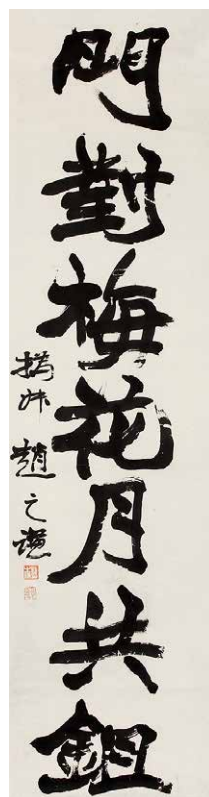 門對梅花月共鉏
撝叔趙之謙